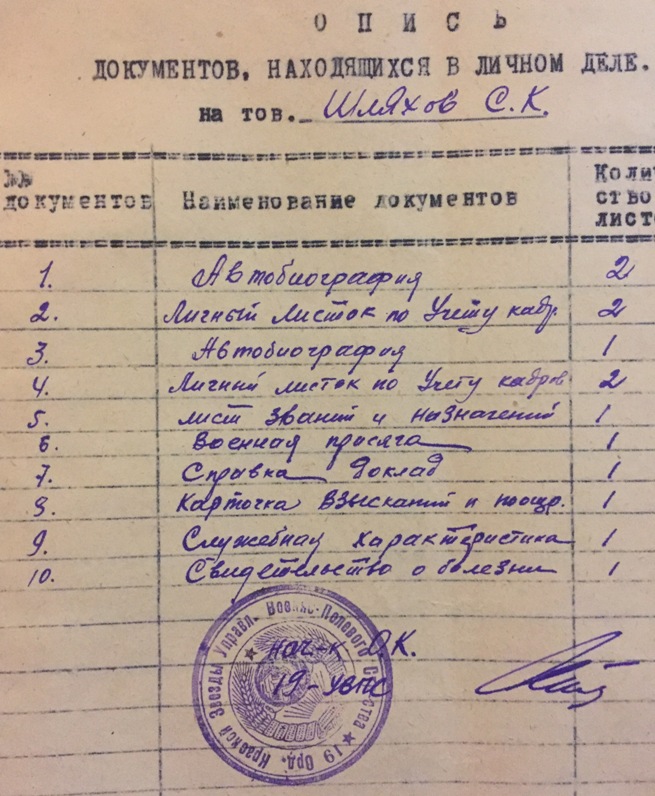 ОПИСЬ
ДОКУМЕНТОВ, НАХОДЯЩИХСЯ В ЛИЧНОМ ДЕЛЕ.
на тов. Шляхов С.К.
№№ документов Наименование документов Коли ство лист
1. Автобиография 2
2. Личный листок по Учету кадр. 2
3. Автобиография 1
4. Личный листок по Учету кадров 2
5. лист званий и назначений 1
6. Военная присяга 1
7. Справка Доклад 1
8. Карточка взысканий и поощр. 1
9. Служебная характеристика 1
10. Свидетельство о болезни 1
нач-к О.К.
19-УВПС
19 Орд. Красной Звезды Управл. Военно-Полевого Строительства